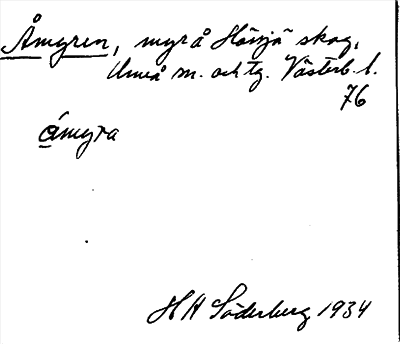 Åmyren, myr å Hössjö skog,
Umeå sn. och tg. Västerb. l.
76
åmyra
H H Söderberg 1934